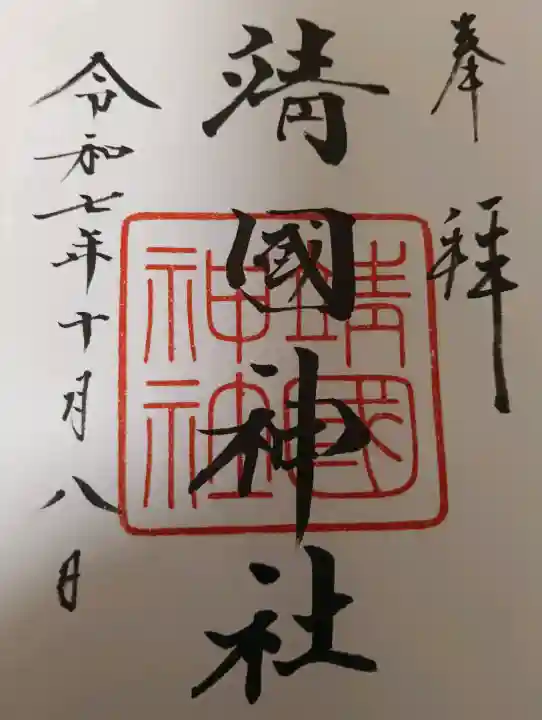 奉拜
靖國神社
靖國
神社
令和七年十月八日